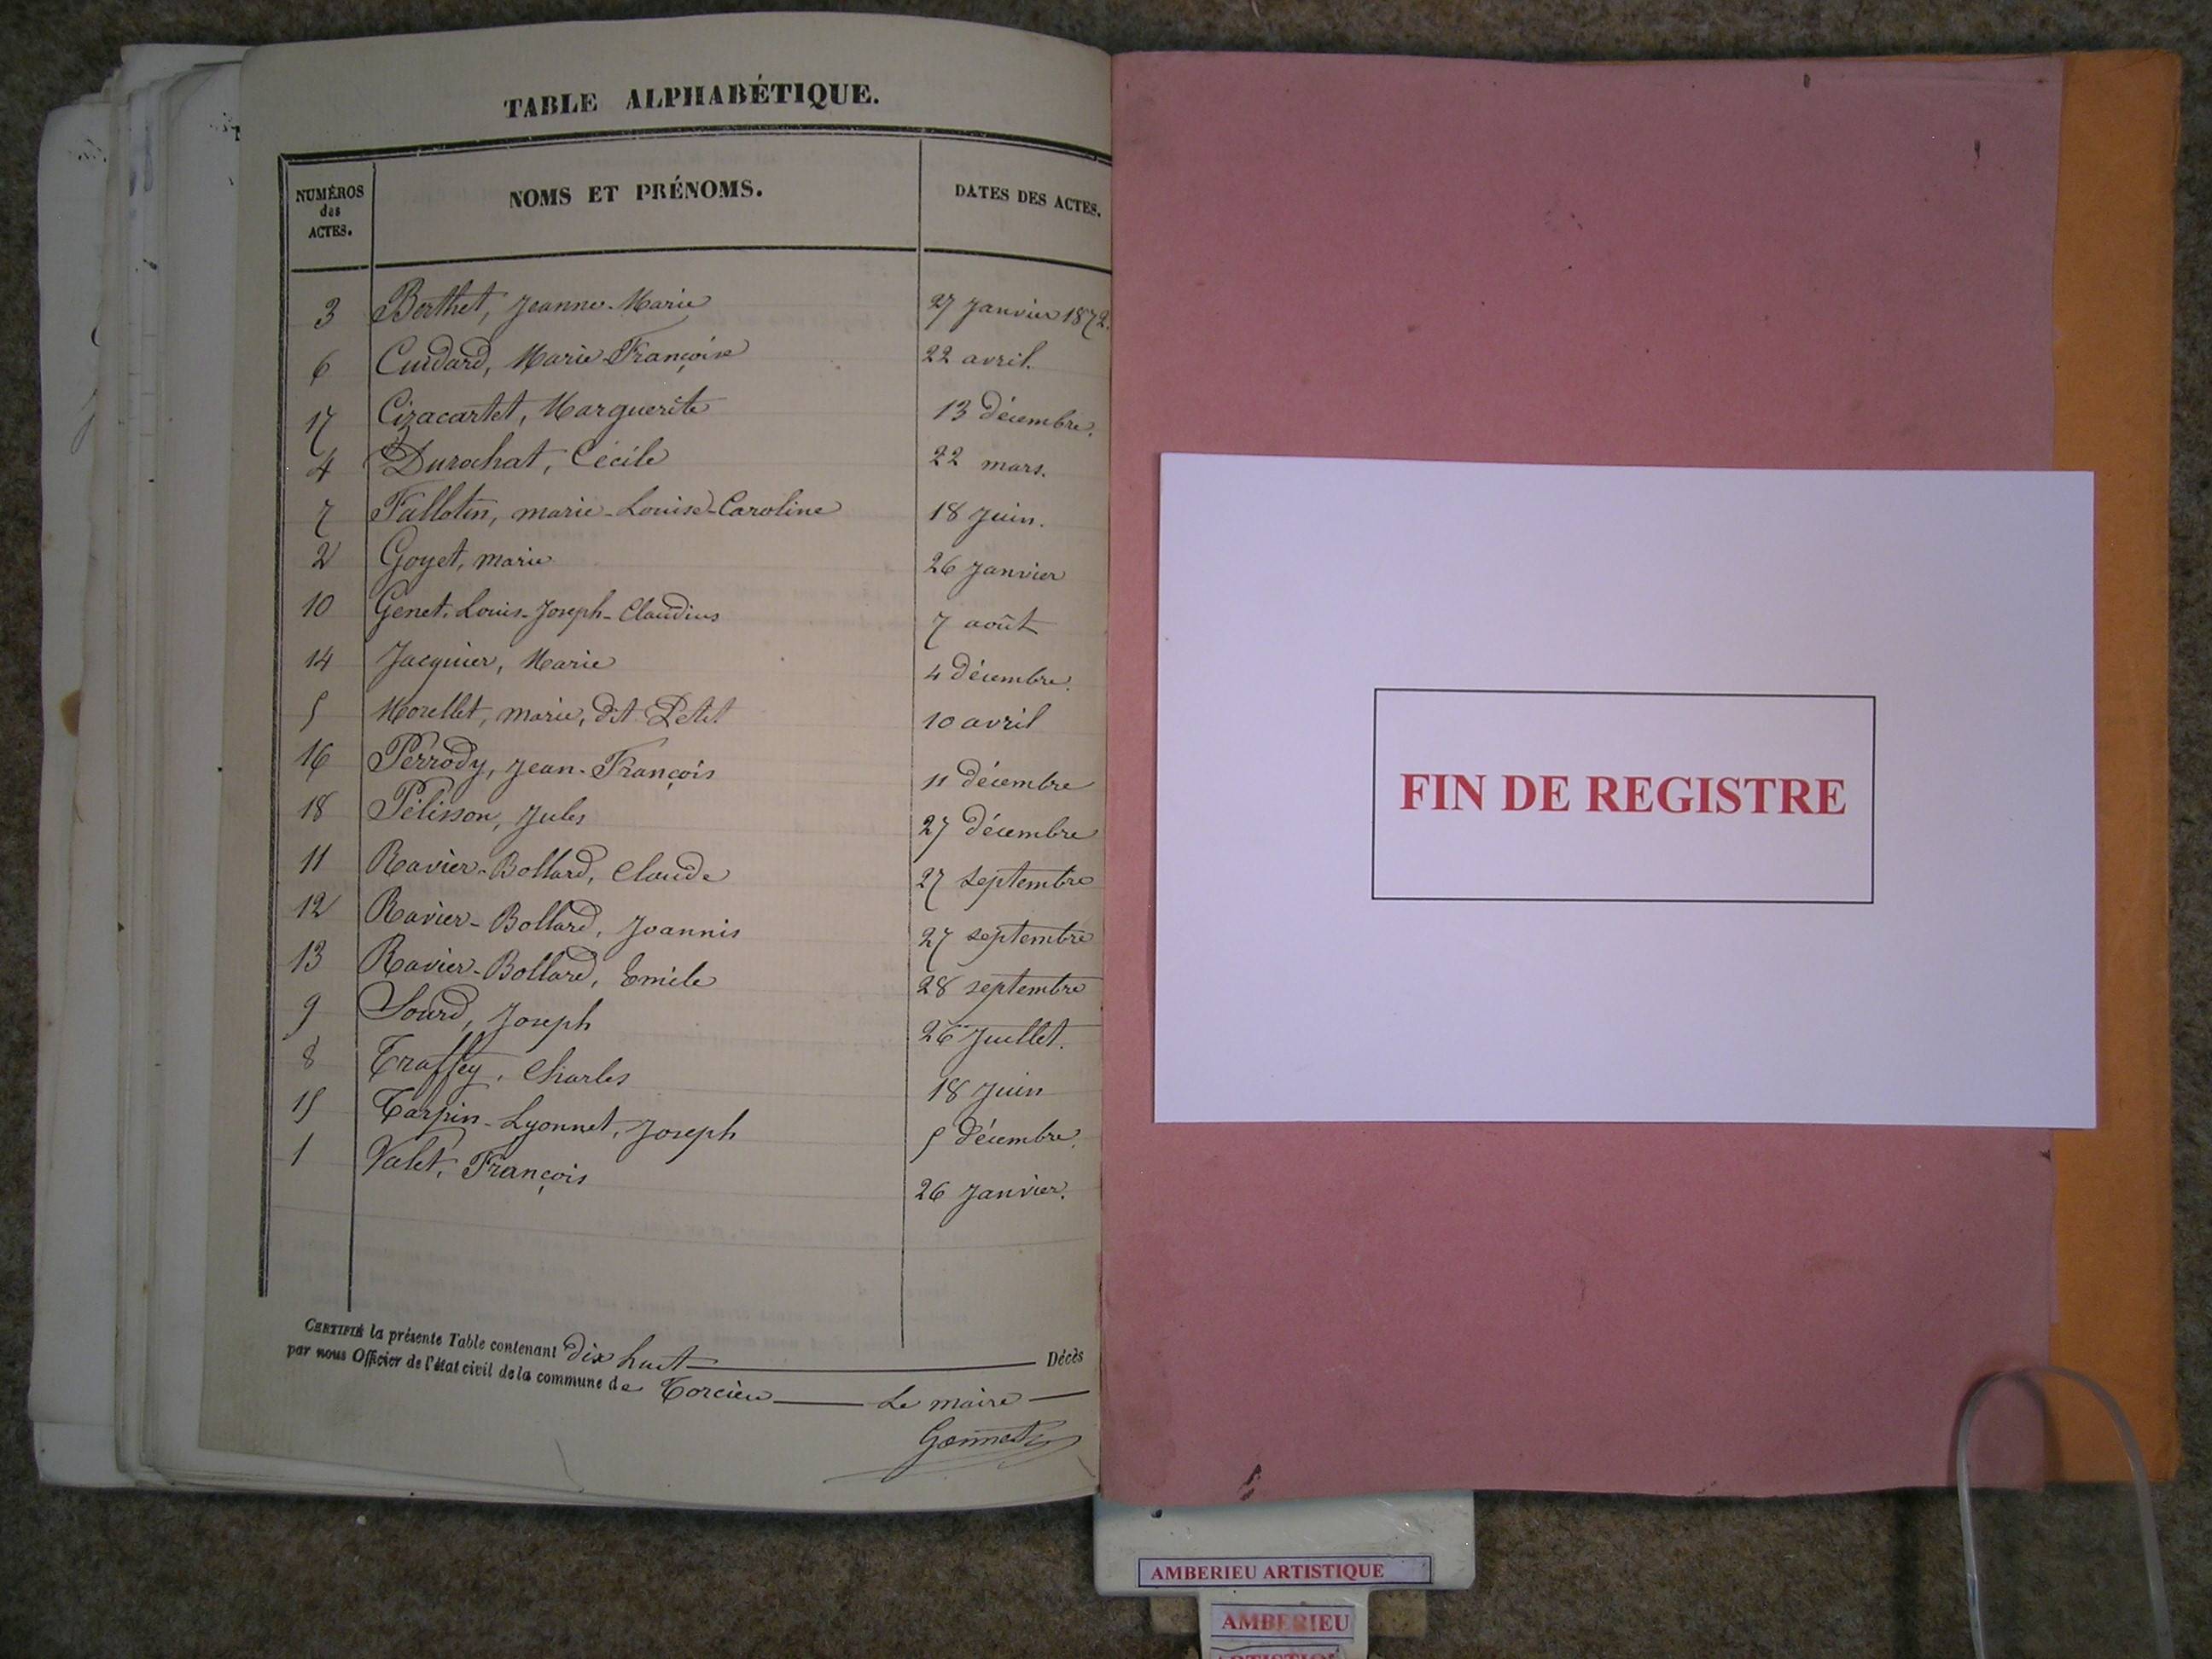 TABLE ALPHABÉTIQUE.
NUMÉROS des ACTES. NOMS ET PRÉNOMS. DATES DES ACTES.
3 Berthet, Jeanne-Marie 27 Janvier 1872.
6 Cuidard, Marie-Françoise 22 avril.
17 Cizacartet, Marguerite 13 décembre.
4 Durochat, Cécile 22 mars.
7 Fallotin, marie-Louise-Caroline 18 Juin.
2 Goyet, marie 26 Janvier
10 Genet, Louis-Joseph-Claudius 7 août
14 Jacquier, Marie 4 décembre.
5 Morellet, marie, dit Petit 10 avril
16 Perrody, Jean-François 11 décembre
18 Pélisson, Jules 27 décembre
11 Ravier-Bollard, Claude 27 septembre
12 Ravier-Bollard, Joannis 27 septembre
13 Ravier-Bollard, Emile 28 septembre
9 Sourd, Joseph 26 Juillet.
8 Traffey, Charles 18 Juin
15 Tarpin-Lyonnet, Joseph 5 décembre.
1 Valet, François 26 Janvier.
CERTIFIÉ la présente Table contenant dix huit Décès
par nous Officier de l'état civil de la commune de Torcieu Le maire
Gonnet
FIN DE REGISTRE
AMBERIEU ARTISTIQUE
AMBERIEU